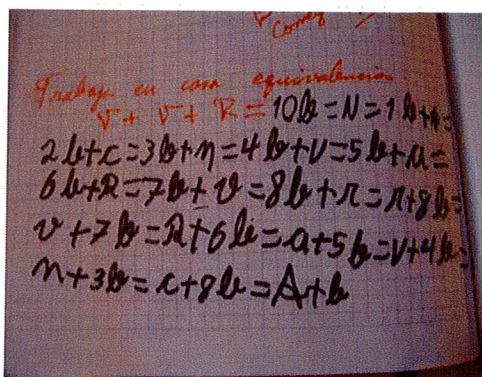 Comez
Trabajo en casa equivalencias
V + V + R = 10b = N = 1b+A=
2b+c=3b+n=4b+V=5b+a=
6b+R=7b+v=8b+r=r+8b=
v+7b=R+6b=a+5b=V+4b=
n+3b=c+8b=A+b